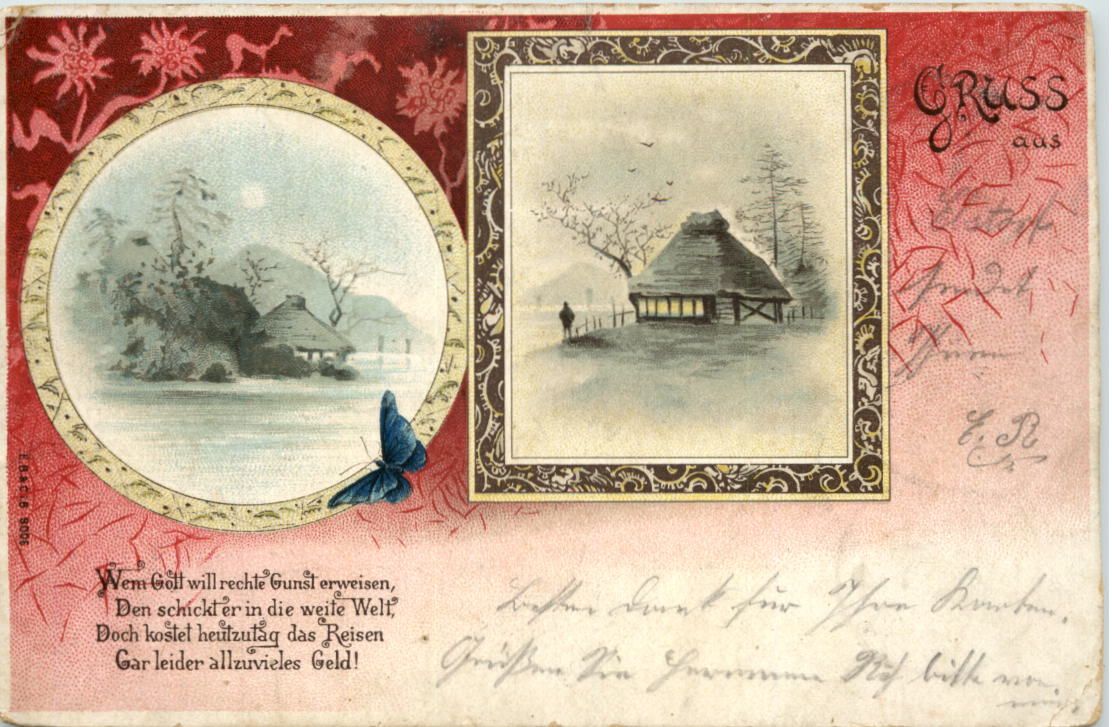 GRUSS
aus
sendet
E. R.
E.B & C.6 9006
Wem Gott will rechte Gunst erweisen,
Den schickt er in die weite Welt,
Doch kostet heutzutag das Reisen
Gar leider allzuvieles Geld!
Besten Dank für Ihre Karten.
Grüßen Sie Hermann bitte von